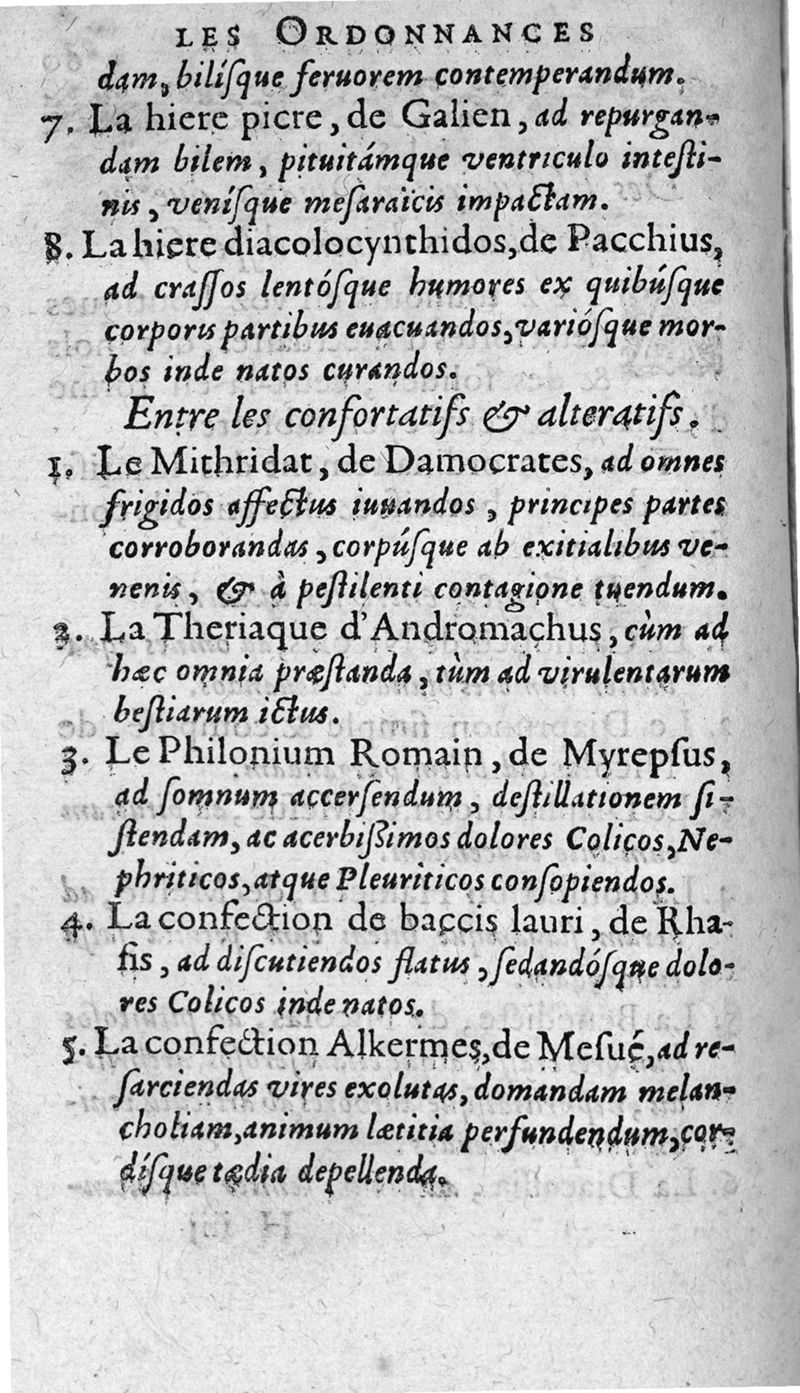 LES ORDONNANCES
dam, bilíſque feruorem contemperandum.
7. La hiere picre, de Galien, ad repurgan-
dam bilem, pituitámque ventriculo inteſti-
nis, veníſque meſaraïcis impactam.
8. La hiere diacolocynthidos, de Pacchius,
ad craſſos lentóſque humores ex quibúſque
corporis partibus euacuandos, varióſque mor-
bos inde natos curandos.
Entre les confortatifs & alteratifs.
1. Le Mithridat, de Damocrates, ad omnes
frigidos affectus iuuandos, principes partes
corroborandas, corpúſque ab exitialibus ve-
nenis, & à peſtilenti contagione tuendum.
2. La Theriaque d'Andromachus, cùm ad
hæc omnia præſtanda, tùm ad virulentarum
beſtiarum ictus.
3. Le Philonium Romain, de Myrepſus,
ad ſomnum accerſendum, deſtillationem ſi-
ſtendam, ac acerbiſſimos dolores Colicos, Ne-
phriticos, atque Pleuriticos conſopiendos.
4. La confection de baccis lauri, de Rha-
ſis, ad diſcutiendos flatus, ſedandóſque dolo-
res Colicos inde natos.
5. La confection Alkermes, de Meſué, ad re-
ſarciendas vires exolutas, domandam melan-
choliam, animum lætitia perfundendum, cor-
díſque tædia depellenda.